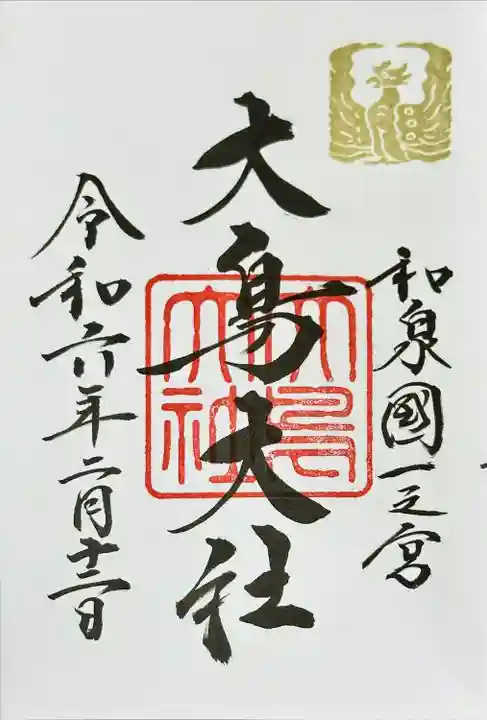 和泉國一之宮
大鳥大社
大鳥大社
令和六年二月十二日